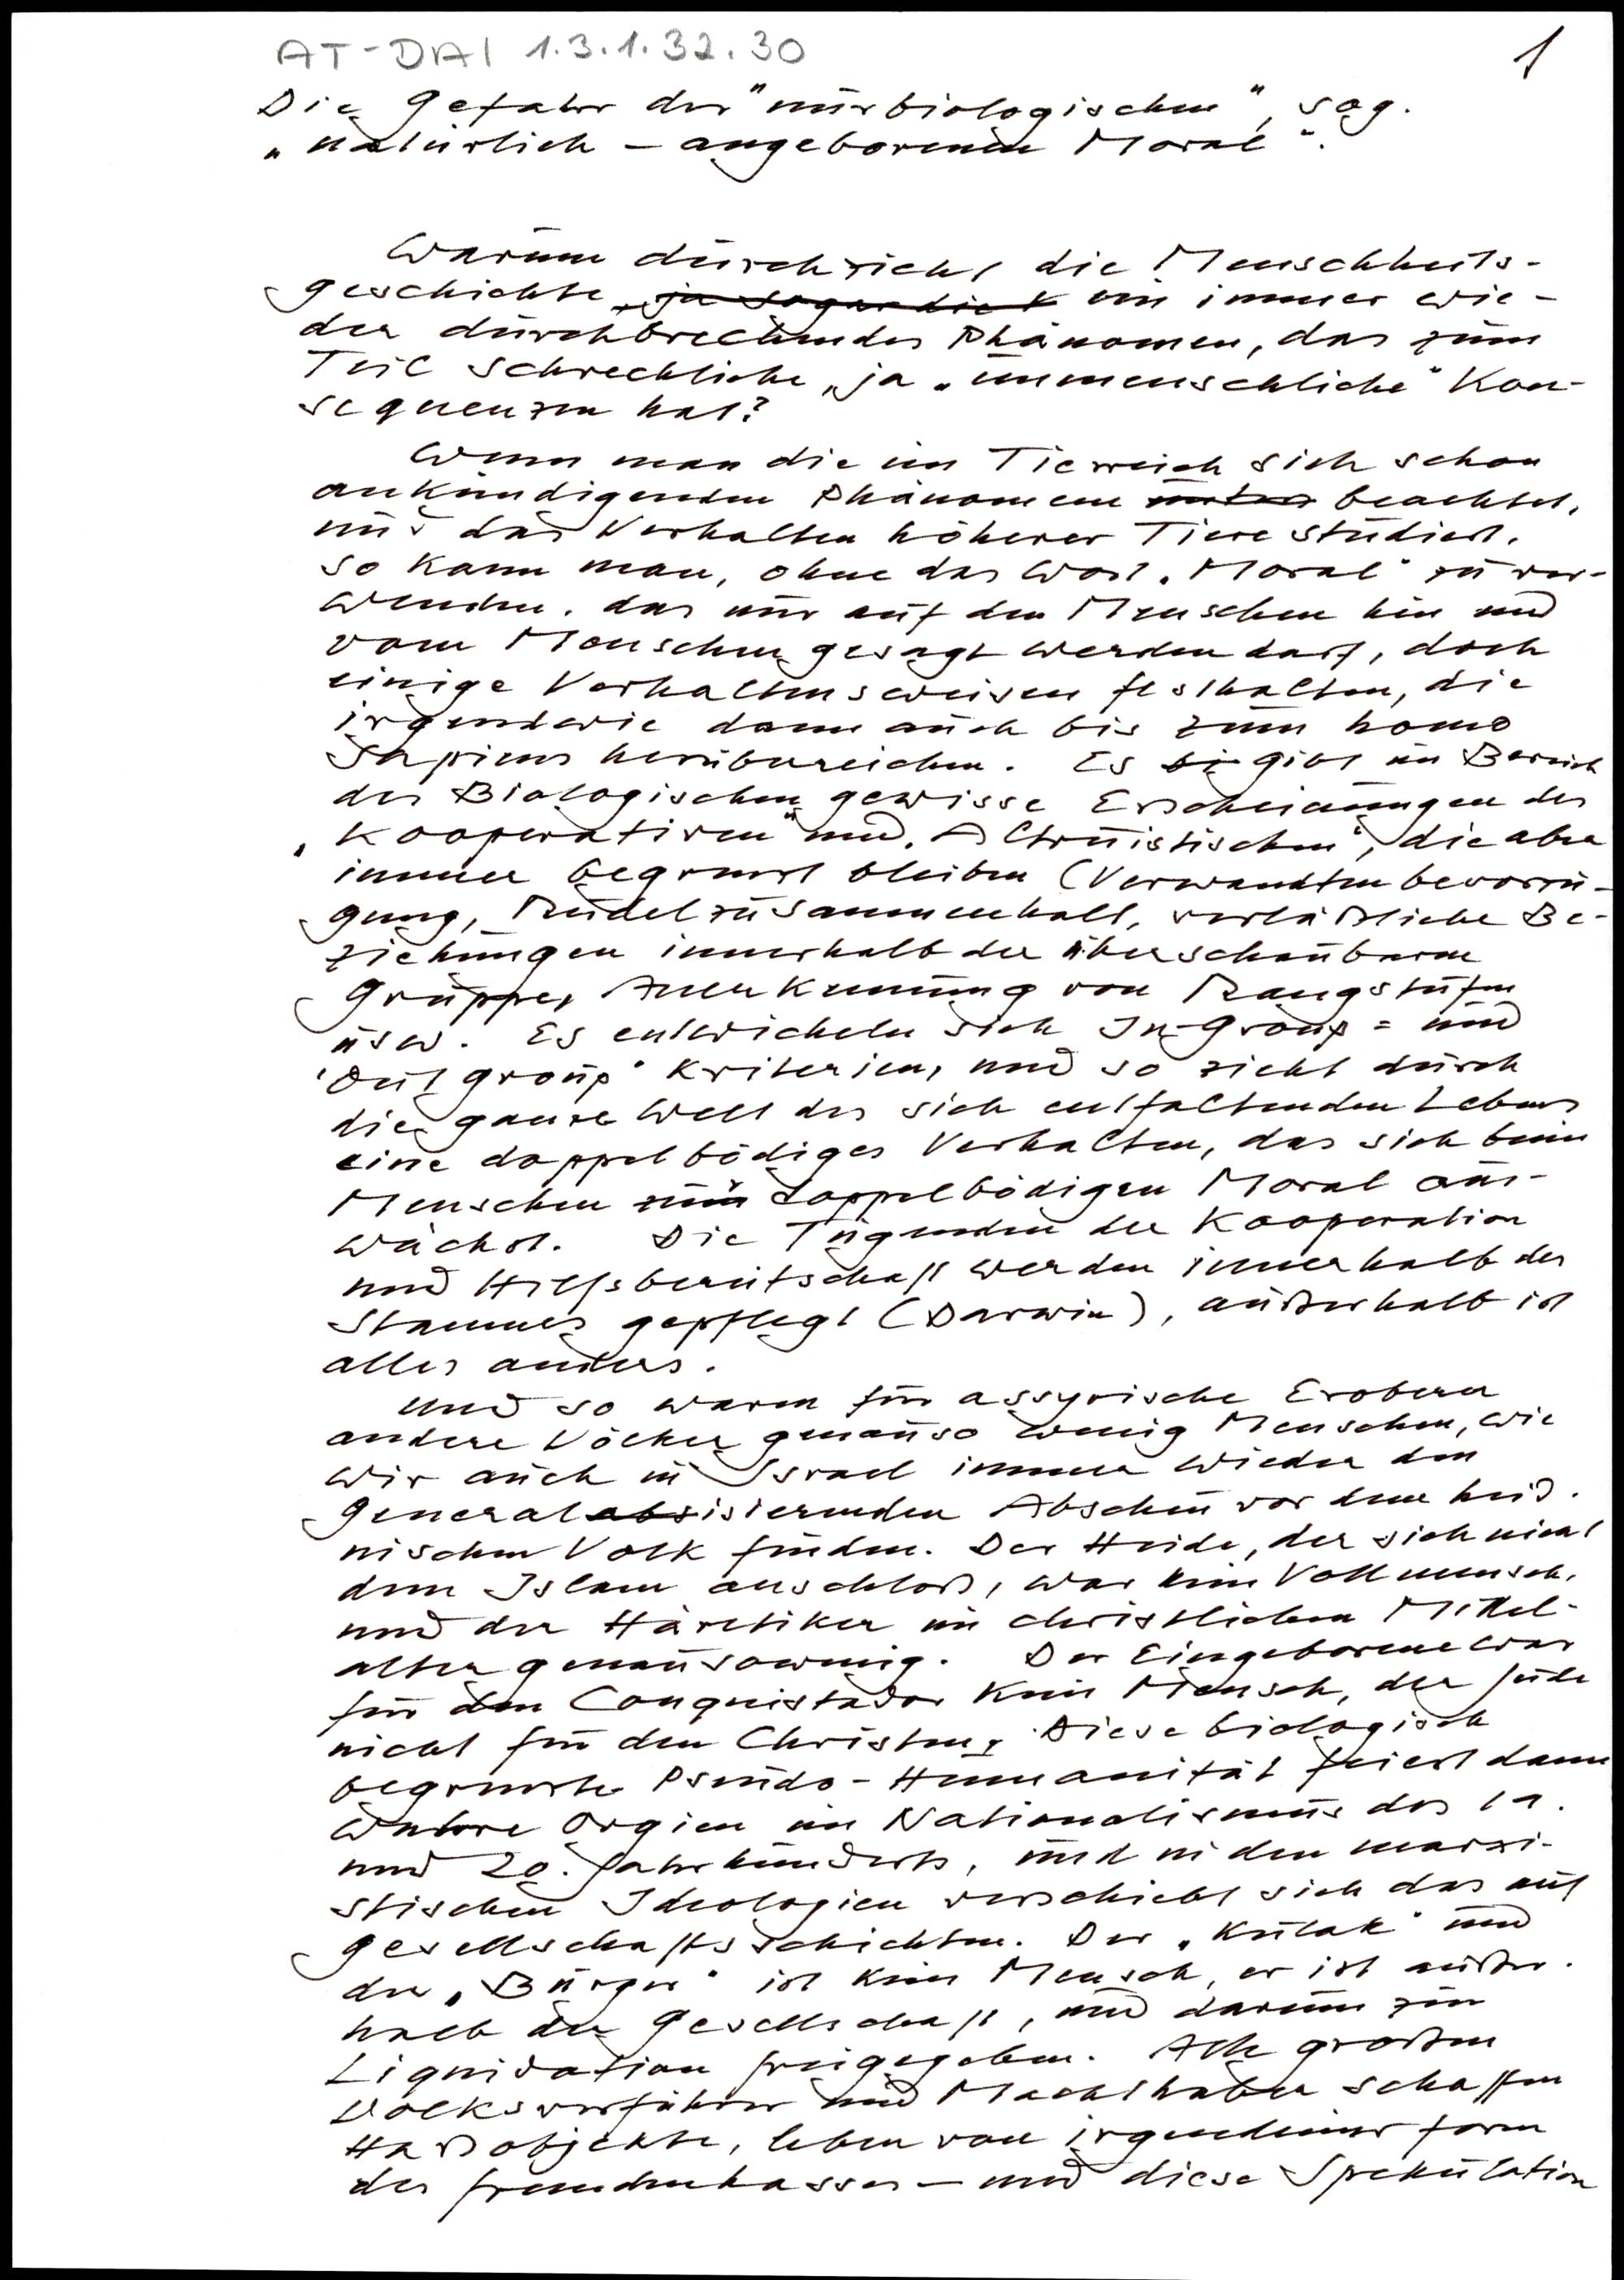 AT-DAI 1.3.1.32.30
1
Die Gefahr der "nurbiologischen", sog.
„natürlich - angeborenen Moral".
Warum durchzieht die Menschheits-
geschichte, ja sogar die ein immer wie-
der durchbrechendes Phänomen, das zum
Teil schreckliche, ja „unmenschliche" Kon-
sequenzen hat?
Wenn man die im Tierreich sich schon
ankündigenden Phänomene unter beachtet,
und das Verhalten höherer Tiere studiert,
so kann man, ohne das Wort „Moral" zu ver-
wenden, das nur auf den Menschen hin und
vom Menschen gesagt werden darf, doch
einige Verhaltensweisen festhalten, die
irgendwie dann auch bis zum homo
sapiens herüberreichen. Es gibt im Bereich
des Biologischen gewisse Erscheinungen des
„Kooperativen" und „Altruistischen", die aber
immer begrenzt bleiben (Verwandtenbevorzu-
gung, Rudelzusammenhalt, verläßliche Be-
ziehungen innerhalb der überschaubaren
Gruppe, Anerkennung von Rangstufen
usw. Es entwickeln sich In-Group = und
'Outgroup" Kriterien, und so zieht durch
die ganze Welt des sich entfaltenden Lebens
eine doppelbödiges Verhalten, das sich beim
Menschen zur doppelbödigen Moral aus-
wächst. Die Tugenden der Kooperation
und Hilfsbereitschaft werden innerhalb des
Stammes gepflegt (Darwin), außerhalb ist
alles anders.
Und so waren für assyrische Eroberer
andere Völker genauso wenig Menschen, wie
wir auch in Israel immer wieder den
generalisierenden Abscheu vor dem heid-
nischen Volk finden. Der Heide, der sich nicht
dem Islam anschloß, war kein Vollmensch,
und der Häretiker im christlichen Mittel-
alter genausowenig. Der Eingeborene war
für den Conquistador kein Mensch, der Jude
nicht für den Christen. Diese biologisch
begrenzte Pseudo-Humanität feiert dann
wahre Orgien im Nationalismus des 19.
und 20. Jahrhunderts, und in den marxi-
stischen Ideologien verschiebt sich das auf
Gesellschaftsschichten. Der „Kulak" und
der „Bürger" ist kein Mensch, er ist außer-
halb der Gesellschaft, und darum zur
Liquidation freigegeben. Alle großen
Volksverführer und Machthaber schaffen
Haßobjekte, leben von irgendeiner Form
des Fremdenhasses - und diese Spekulation